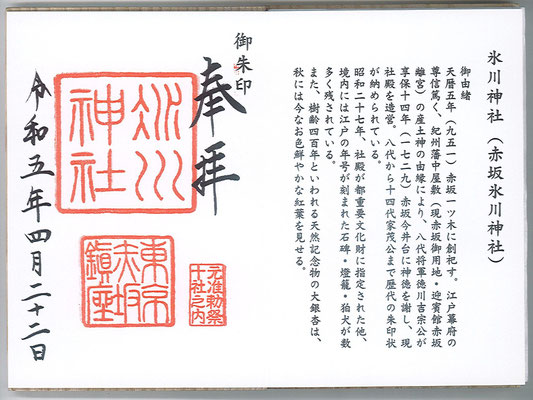 氷川神社（赤坂氷川神社）
御由緒
天暦五年（九五一）赤坂一ツ木に創祀す。江戸幕府の
尊信篤く、紀州藩中屋敷（現赤坂御用地・迎賓館赤坂
離宮）の産土神の由縁により、八代将軍徳川吉宗公が
享保十四年（一七二九）赤坂今井台に神徳を謝し、現
社殿を造営。八代から十四代家茂公まで歴代の朱印状
が納められている。
昭和二十七年、社殿が都重要文化財に指定された他、
境内には江戸の年号が刻まれた石碑・燈籠・狛犬が数
多く残されている。
また、樹齢四百年といわれる天然記念物の大銀杏は、
秋には今なお色鮮やかな紅葉を見せる。
御朱印
奉拝
氷川
神社
元准勅祭
十社之内
東京
赤坂
鎮座
令和五年四月二十二日